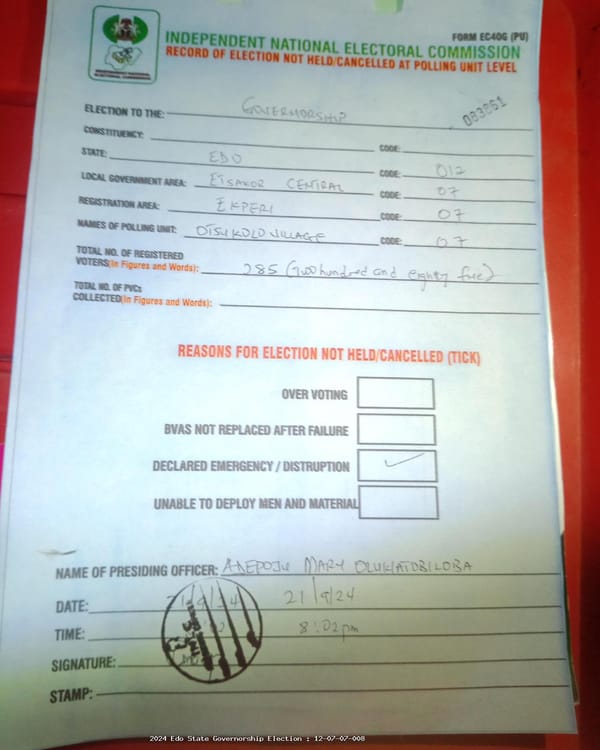 FORM EC40G (PU)
INDEPENDENT NATIONAL ELECTORAL COMMISSION
RECORD OF ELECTION NOT HELD/CANCELLED AT POLLING UNIT LEVEL
083861
ELECTION TO THE: GOVERNORSHIP
CONSTITUENCY: CODE:
STATE: EDO CODE: 012
LOCAL GOVERNMENT AREA: ETSAKOR CENTRAL CODE: 07
REGISTRATION AREA: EKPERI CODE: 07
NAMES OF POLLING UNIT: OTSUKOLO VILLAGE CODE: 07
TOTAL NO. OF REGISTERED
VOTERS(In Figures and Words): 285 (Two hundred and eighty five)
TOTAL NO. OF PVCs
COLLECTED(In Figures and Words):
REASONS FOR ELECTION NOT HELD/CANCELLED (TICK)
OVER VOTING
BVAS NOT REPLACED AFTER FAILURE
DECLARED EMERGENCY / DISTRUPTION
UNABLE TO DEPLOY MEN AND MATERIAL
NAME OF PRESIDING OFFICER: ADEPOJU MARY OLUWATOBILOBA
DATE: 21/9/24
TIME: 8:02pm
SIGNATURE:
STAMP:
2024 Edo State Governorship Election : 12-07-07-008